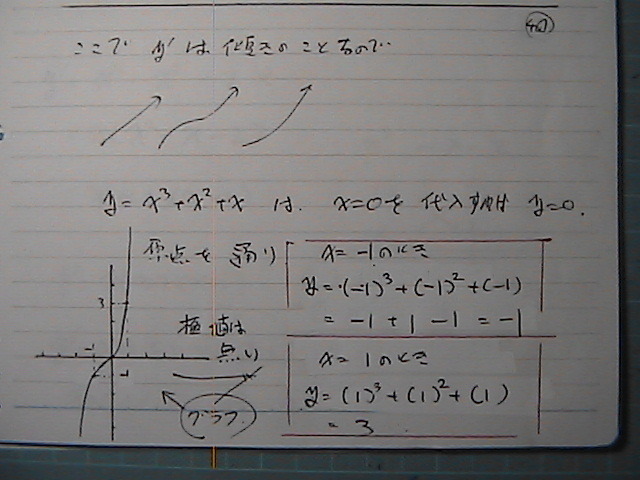 ここで y'は 傾きの ことなので‥
y = x³+x²+x は、 x=0を 代入すれば y=0.
原点を 通り
x = -1のとき
y = (-1)³+(-1)²+(-1)
= -1 + 1 - 1 = -1
3
極値は
-1
-1
x = 1のとき
y = (1)³+(1)²+(1)
= 3
グラフ